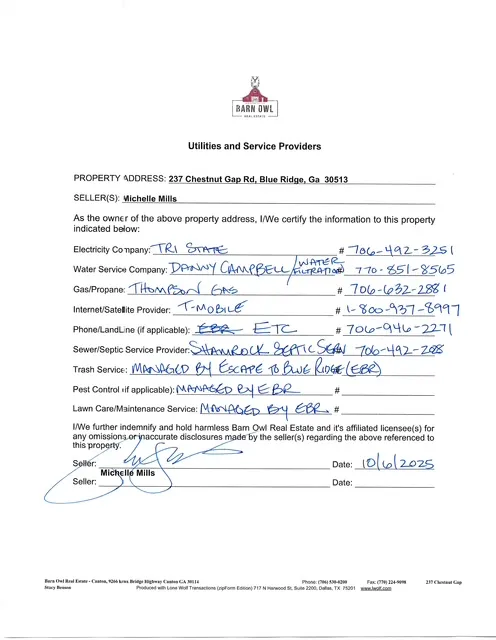 BARN OWL
REAL ESTATE
Utilities and Service Providers
PROPERTY ADDRESS: 237 Chestnut Gap Rd, Blue Ridge, Ga 30513
SELLER(S): Michelle Mills
As the owner of the above property address, I/We certify the information to this property
indicated below:
Electricity Company: TRI STATE # 706-492-3251
Water Service Company: DANNY CAMPBELL/WATER FILTRATION # 770-851-8565
Gas/Propane: THOMPSON GAS # 706-632-2881
Internet/Satellite Provider: T-MOBILE # 1-800-937-8997
Phone/LandLine (if applicable): EBR ETC # 706-946-2271
Sewer/Septic Service Provider: SHAMROCK SEPTIC 706-492-
Trash Service: MANAGED BY ESCAPE TO BLUE RIDGE (EBR)
Pest Control (if applicable): MANAGED BY EBR #
Lawn Care/Maintenance Service: MANAGED BY EBR #
I/We further indemnify and hold harmless Barn Owl Real Estate and it's affiliated licensee(s) for
any omissions or inaccurate disclosures made by the seller(s) regarding the above referenced to
this property.
Seller: Date: 10/6/2025
Michelle Mills
Seller: Date:
Barn Owl Real Estate - Canton, 9266 Bridge Highway Canton GA 30114 Phone: (706) 530-0200 Fax: (770) 224-9098 237 Chestnut Gap
Stacy Benson Produced with Lone Wolf Transactions (zipForm Edition) 717 N Harwood St, Suite 2200, Dallas, TX 75201 www.lwolf.com